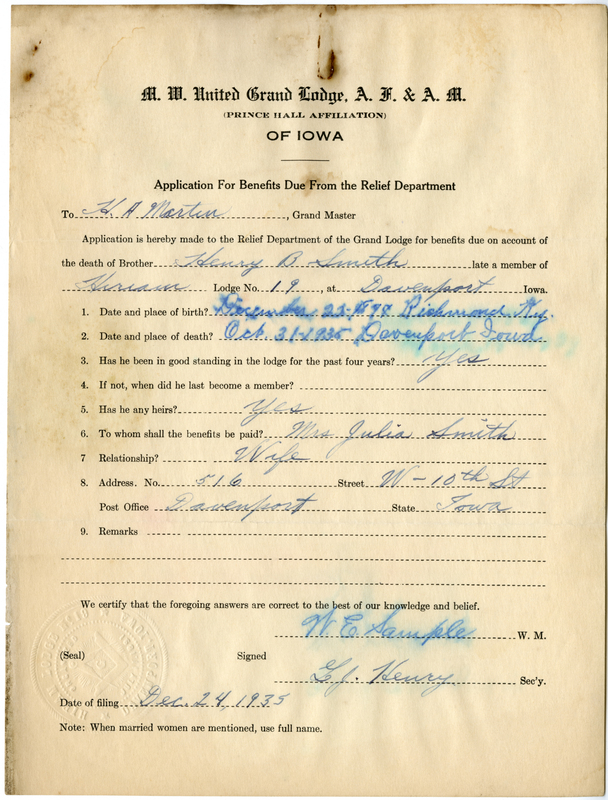 M. W. United Grand Lodge, A. F. & A. M.
(PRINCE HALL AFFILIATION)
OF IOWA
Application For Benefits Due From the Relief Department
To H A Martin, Grand Master
Application is hereby made to the Relief Department of the Grand Lodge for benefits due on account of
the death of Brother Henry B Smith late a member of
Hiriam Lodge No. 19, at Davenport Iowa.
1. Date and place of birth? December 25- Richmond Ky.
2. Date and place of death? Oct. 31-1935 Davenport Iowa
3. Has he been in good standing in the lodge for the past four years? Yes
4. If not, when did he last become a member?
5. Has he any heirs? Yes
6. To whom shall the benefits be paid? Mrs Julia Smith
7 Relationship? Wife
8. Address. No. 516 Street W-10th St
Post Office Davenport State Iowa
9. Remarks
We certify that the foregoing answers are correct to the best of our knowledge and belief.
W E Sample W. M.
(Seal) Signed
G. J. Henry Sec'y.
Date of filing Dec. 24, 1935
Note: When married women are mentioned, use full name.